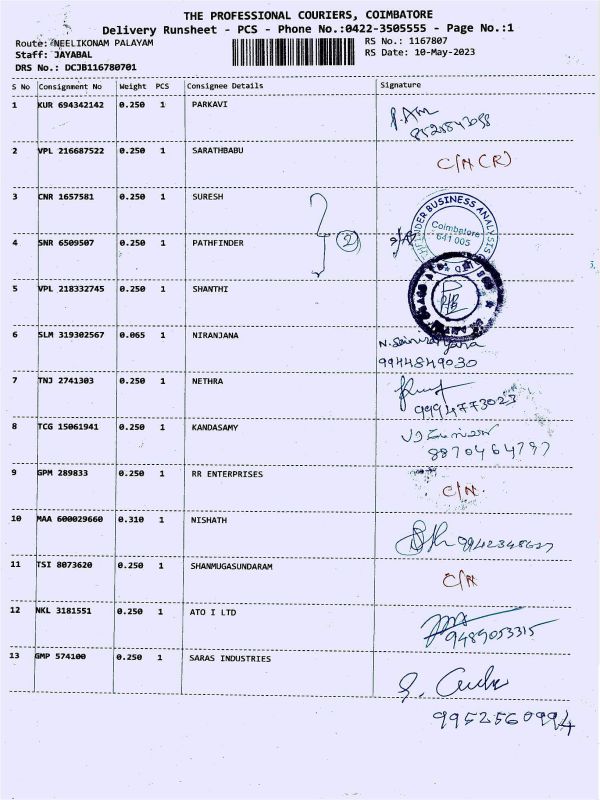 THE PROFESSIONAL COURIERS, COIMBATORE
Delivery Runsheet - PCS - Phone No.:0422-3505555 - Page No.:1
Route: NEELIKONAM PALAYAM
RS No.: 1167807
Staff: JAYABAL
RS Date: 10-May-2023
DRS No.: DCJB116780701
S No Consignment No Weight PCS Consignee Details Signature
1 KUR 694342142 0.250 1 PARKAVI
2 VPL 216687522 0.250 1 SARATHBABU C/N (R)
3 CNR 1657581 0.250 1 SURESH
4 SNR 6509507 0.250 1 PATHFINDER 2
BUSINESS ANALYSIS
Coimbatore
641 005
5 VPL 218332745 0.250 1 SHANTHI
6 SLM 319302567 0.065 1 NIRANJANA
9944849030
7 TNJ 2741303 0.250 1 NETHRA
9994773023
8 TCG 15061941 0.250 1 KANDASAMY
8870464797
9 GPM 289833 0.250 1 RR ENTERPRISES C/N
10 MAA 600029660 0.310 1 NISHATH
11 TSI 8073620 0.250 1 SHANMUGASUNDARAM C/N
12 NKL 3181551 0.250 1 ATO I LTD
9489053315
13 GMP 574100 0.250 1 SARAS INDUSTRIES
9952560994